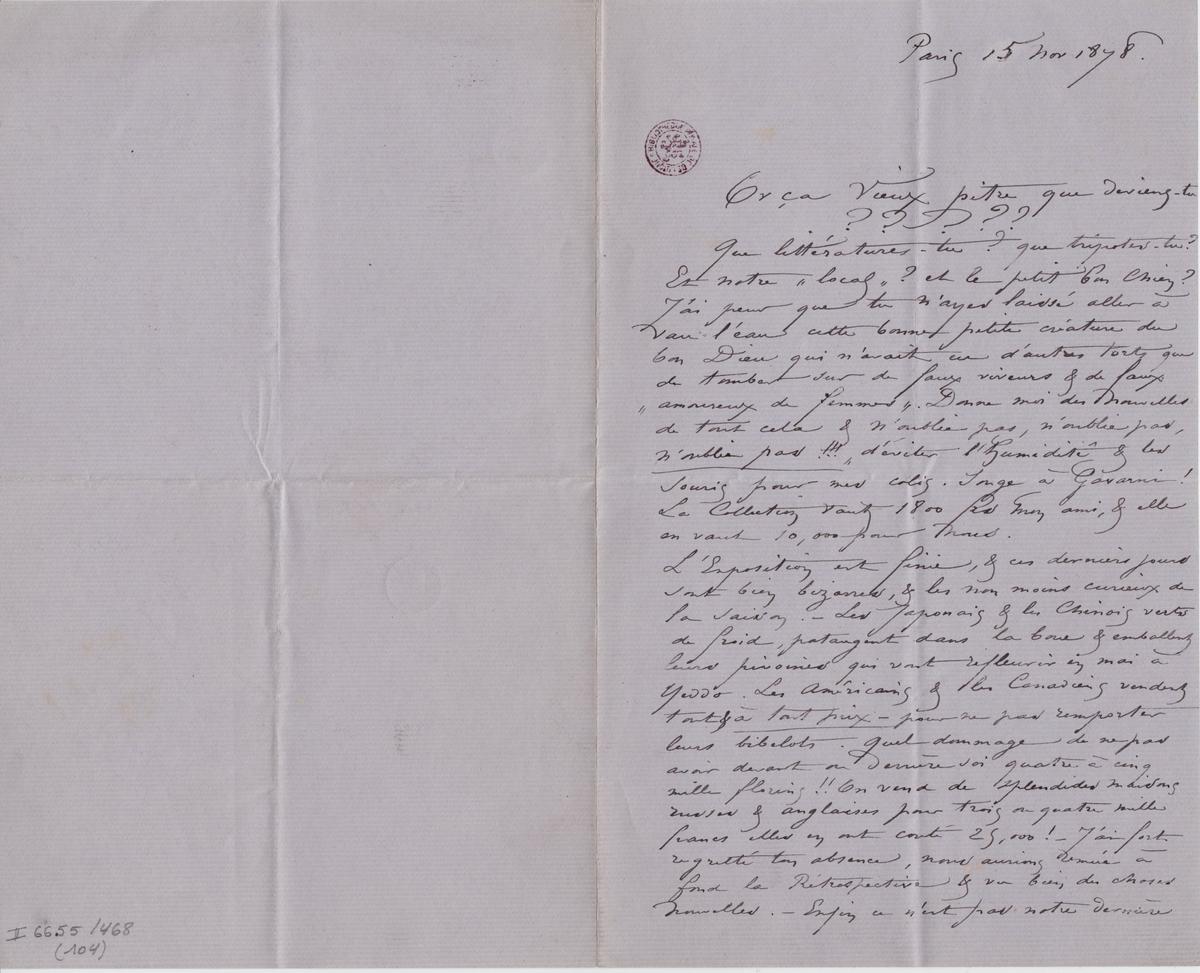 Paris 15 Nov 1878.
Or ça Vieux pitre que deviens-tu
? ? ? ? ?
Que littératures-tu ? que tripotes-tu ?
Et notre „ local „ ? et le petit bon Chien ?
J'ai peur que tu n'ayes laissé aller à
vau-l'eau cette bonne petite créature du
bon Dieu qui n'avait eu d'autres torts que
de tomber sur de faux viveurs & de faux
„ amoureux de femmes „. Donne moi des nouvelles
de tout cela & n'oublie pas, n'oublie pas,
n'oublie pas !!! „ d'éviter l'Humidité & les
souris pour mes colis. Songe à Gavarni !
La Collection vaut 1800 frs mon ami, & elle
en vaut 10,000 pour nous.
L'Exposition est finie, & ces derniers jours
sont bien bizarres, & les non moins curieux de
la saison. – Les Japonais & les Chinois verts
de froid, pataugent dans la boue & emballent
leurs pivoines qui vont refleurir en mai à
Yeddo. Les Américains & les Canadiens vendent
tout & à tout prix – pour ne pas remporter
leurs bibelots. Quel dommage de ne pas
avoir devant ou derrière soi quatre à cinq
mille florins !! On vend de splendides maisons
russes & anglaises pour trois ou quatre mille
francs elles en ont couté 25,000 ! – J'ai fort
regretté ton absence, nous aurions remué à
fond la Rétrospective & vu bien des choses
nouvelles. – Enfin ce n'est pas notre dernière
II 6655/468
(104)